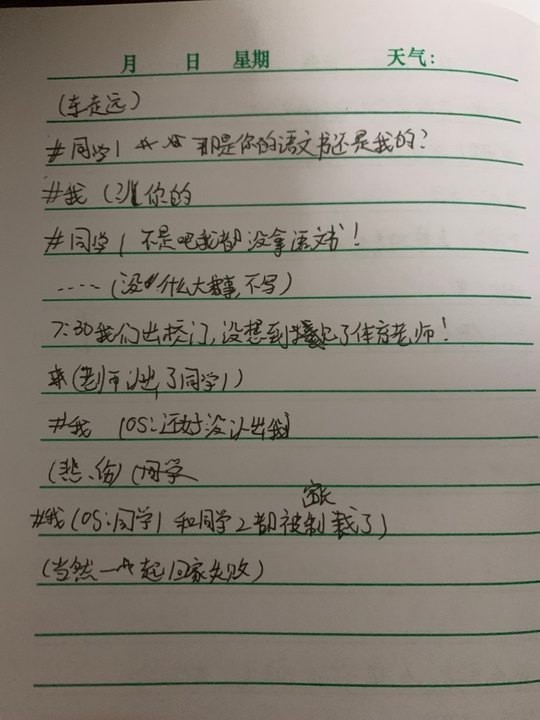 月 日 星期 天气：
（车走远）
#同学1 那是你的语文书还是我的？
#我 你的
#同学1 不是吧我都没拿语文书！
····（没什么大事，不写）
7:30我们出校门，没想到撞见了体育老师！
（老师认出了同学1）
#我 （OS：还好没认出我
（悲、伤）同学
家长
#我（OS：同学1和同学2都被制裁了）
（当然一起回家失败）